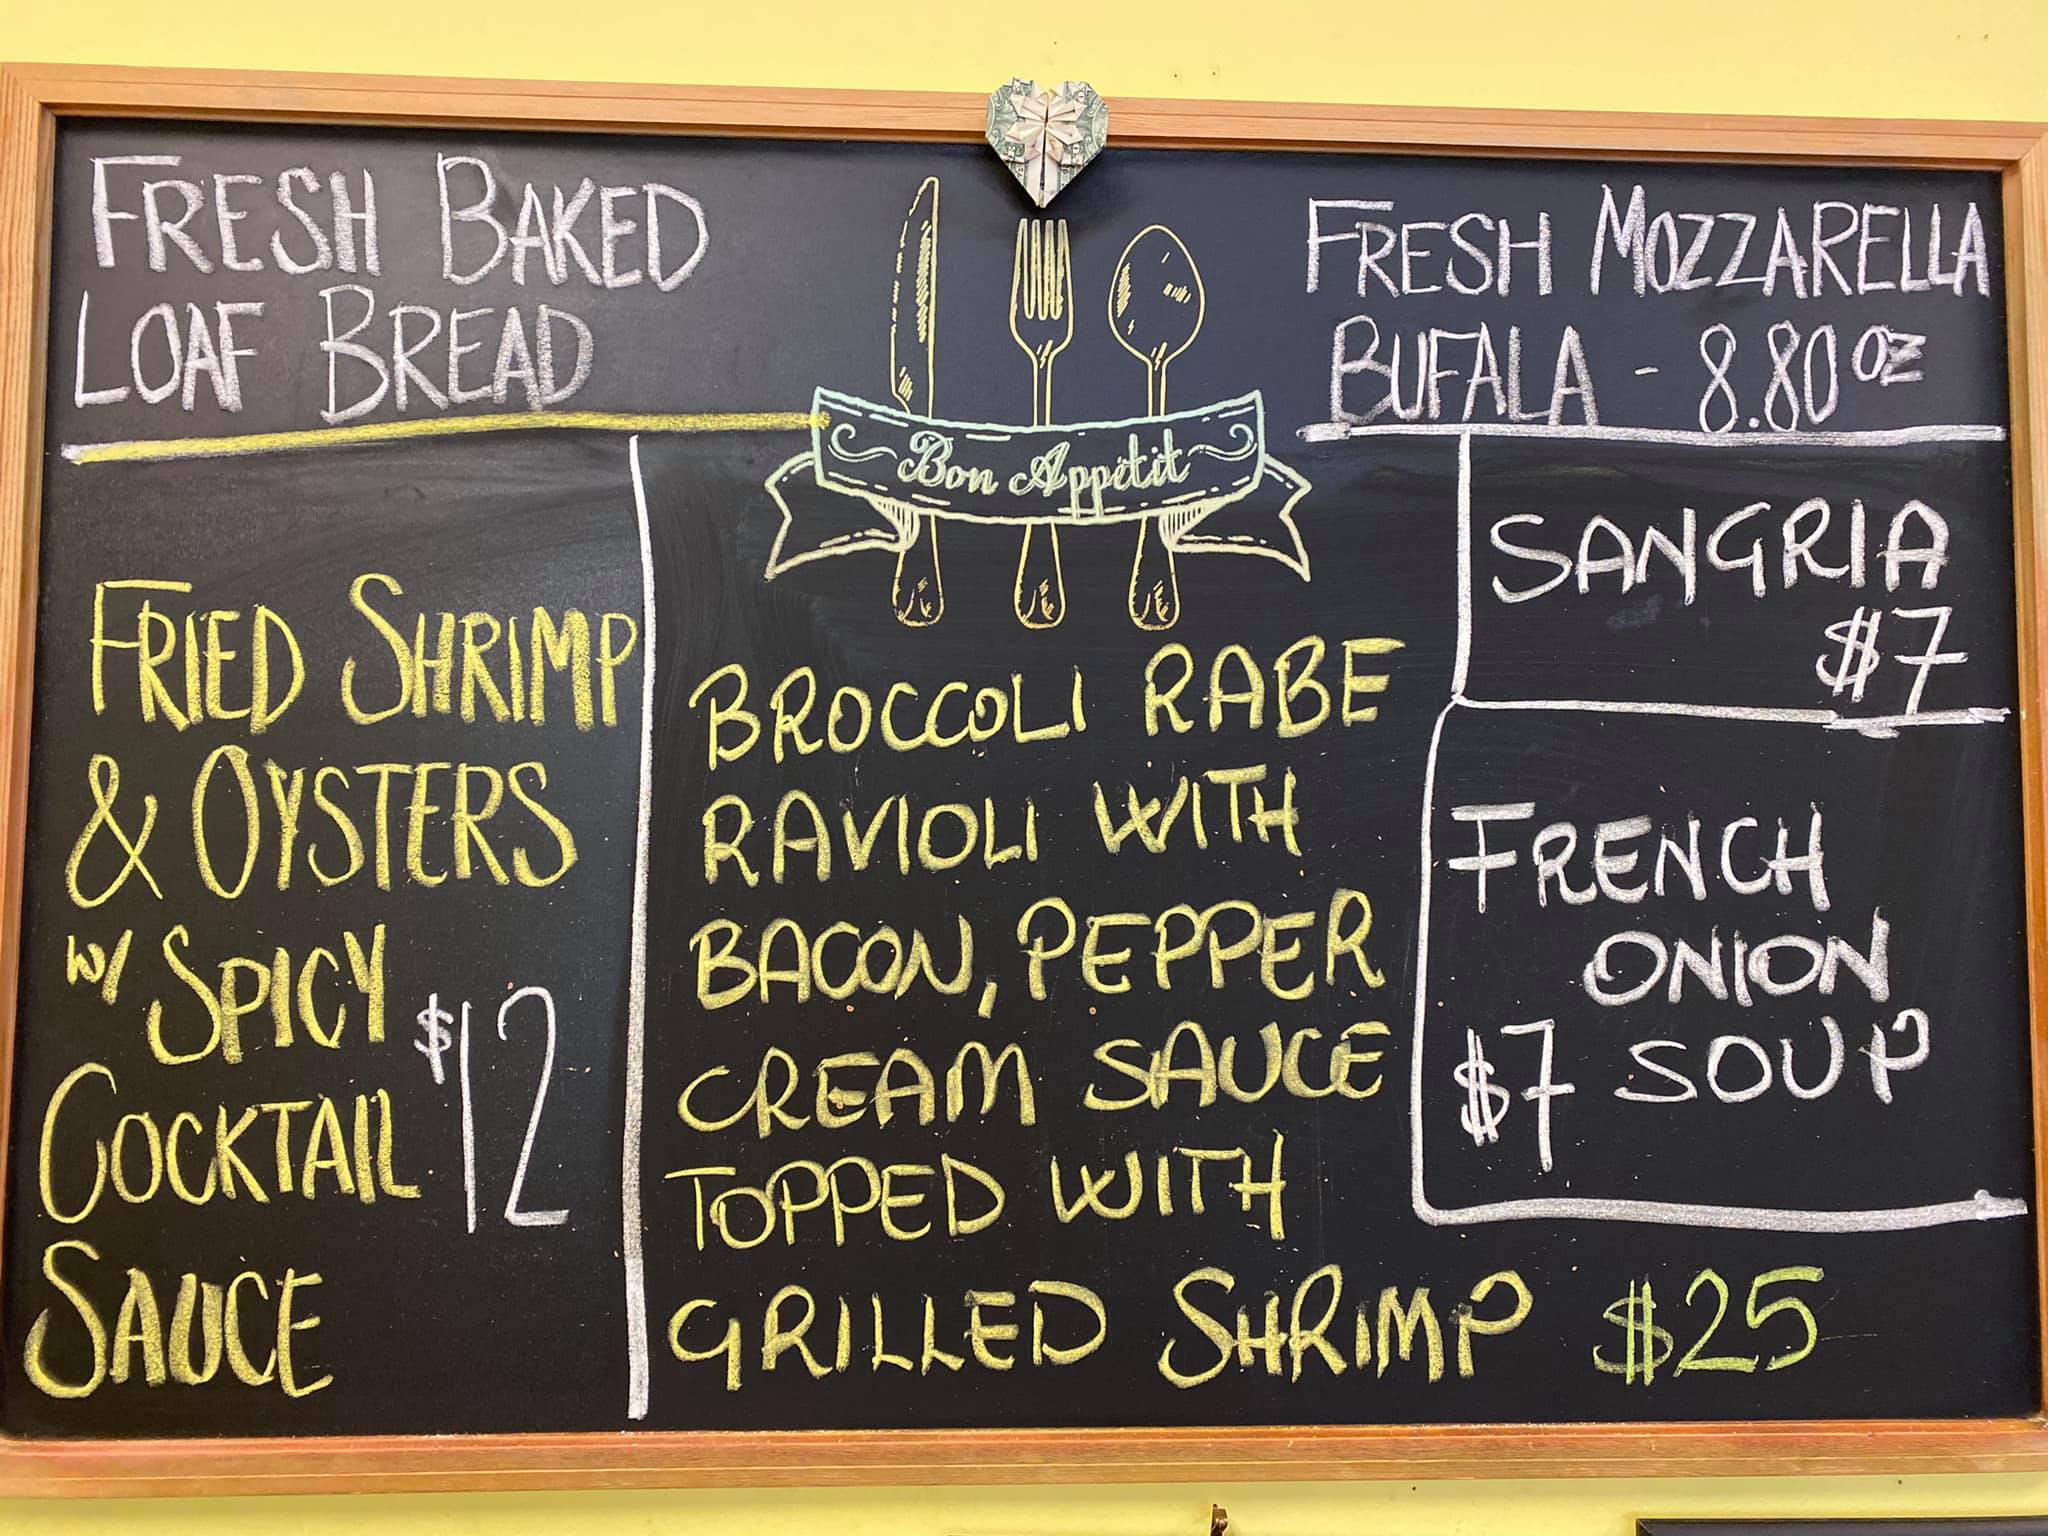 FRESH BAKED
LOAF BREAD
Bon Appétit
FRESH MOZZARELLA
BUFALA - 8.80 OZ
FRIED SHRIMP
& OYSTERS
W/ SPICY
COCKTAIL $12
SAUCE
BROCCOLI RABE
RAVIOLI WITH
BACON, PEPPER
CREAM SAUCE
TOPPED WITH
GRILLED SHRIMP $25
SANGRIA
$7
FRENCH
ONION
$7 SOUP